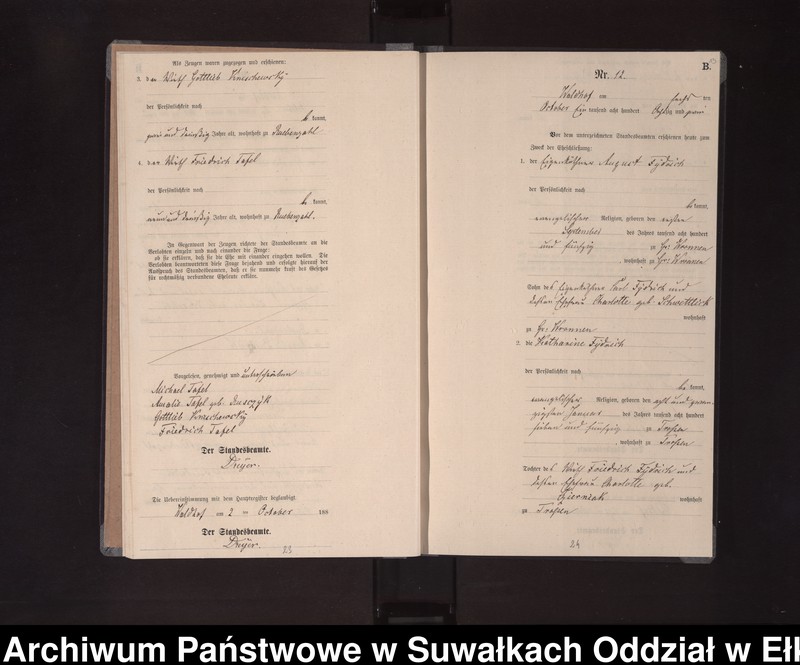 Als Zeugen waren zugezogen und erschienen:
3. der Wirth Gottlieb Kruschewsky
der Persönlichkeit nach
be kannt,
zwei und dreißig Jahre alt, wohnhaft zu
4. der Wirth Friedrich Tafel
der Persönlichkeit nach
be kannt,
neunund dreißig Jahre alt, wohnhaft zu
In Gegenwart der Zeugen richtete der Standesbeamte an die
Verlobten einzeln und nach einander die Frage:
ob sie erklären, daß sie die Ehe mit einander eingehen wollen. Die
Verlobten beantworteten diese Frage bejahend und erfolgte hierauf der
Ausspruch des Standesbeamten, daß er sie nunmehr kraft des Gesetzes
für rechtmäßig verbundene Eheleute erkläre.
Vorgelesen, genehmigt und unterschrieben
Michael Tafel
Amalie Tafel geb.
Gottlieb
Friedrich Tafel
Der Standesbeamte.
Dreyer.
Die Uebereinstimmung mit dem Hauptregister beglaubigt
Waldhof am 2 ten October 188
Der Standesbeamte.
Dreyer.
23
B.
Nr. 12.
Waldhof am sechs ten
October Ein tausend acht hundert Achtzig und zwei
Vor dem unterzeichneten Standesbeamten erschienen heute zum
Zweck der Eheschließung:
1. der Eigenkäthner August Fydrich
der Persönlichkeit nach
be kannt,
evangelischer Religion, geboren den
September des Jahres tausend acht hundert
und fünfzig zu Gr: Kronnen
, wohnhaft zu Gr: Kronnen
Sohn des Eigenkäthner Carl Fydrich und
dessen Ehefrau Charlotte geb.
wohnhaft
zu Gr: Kronnen
2. die Katharine Fydrich
der Persönlichkeit nach
be kannt,
evangelischer Religion, geboren den acht und zwan-
zigsten Januar des Jahres tausend acht hundert
sieben und fünfzig zu Trossen
, wohnhaft zu Trossen
Tochter des Wirth Friedrich Fydrich und
dessen Ehefrau Charlotte geb.
wohnhaft
zu Trossen
24
Archiwum Państwowe w Suwałkach Oddział w Ełk